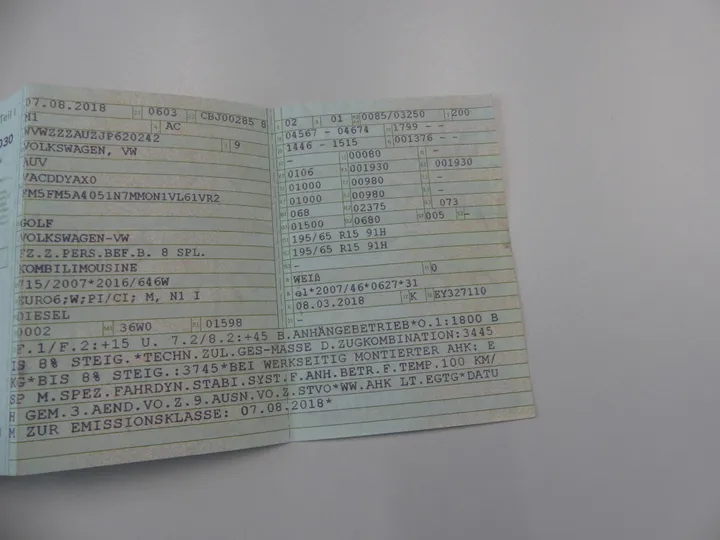 Teil I
030
07.08.2018 0603 CBJ00285 8
M1 AC
WVWZZZAUZJP620242 9
VOLKSWAGEN, VW
AUV
VACDDYAX0
FM5FM5A4051N7MMON1VL61VR2
GOLF
VOLKSWAGEN-VW
FZ.Z.PERS.BEF.B. 8 SPL.
KOMBILIMOUSINE
715/2007*2016/646W
EURO6;W;PI/CI; M, N1 I
DIESEL
0002 36W0 01598
02 01 0085/03250 200
04567 - 04674 1799 - -
1446 - 1515 001376 - -
- 00080 -
0106 001930 001930
01000 00980 -
01000 00980 -
068 02375 073
01500 0680 005 -
195/65 R15 91H
195/65 R15 91H
-
WEIß 0
e1*2007/46*0627*31
08.03.2018 K EY327110
-
F.1/F.2:+15 U. 7.2/8.2:+45 B.ANHÄNGEBETRIEB*O.1:1800 B
IS 8% STEIG.*TECHN.ZUL.GES-MASSE D.ZUGKOMBINATION:3445
KG*BIS 8% STEIG.:3745*BEI WERKSEITIG MONTIERTER AHK: E
SP M.SPEZ.FAHRDYN.STABI.SYST.F.ANH.BETR.F.TEMP.100 KM/
H GEM.3.AEND.VO.Z.9.AUSN.VO.Z.STVO*WW.AHK LT.EGTG*DATU
M ZUR EMISSIONSKLASSE: 07.08.2018*